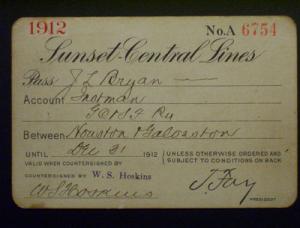 1912 No. A 6754
Sunset-Central Lines
Pass J L Bryan
Account Fastman
G C & S F Ry
Between Houston & Galveston
UNTIL Dec 31 1912 { UNLESS OTHERWISE ORDERED AND
SUBJECT TO CONDITIONS ON BACK
VALID WHEN COUNTERSIGNED BY
COUNTERSIGNED BY W. S. Hoskins
W S Hoskins J. Fay
PRESIDENT